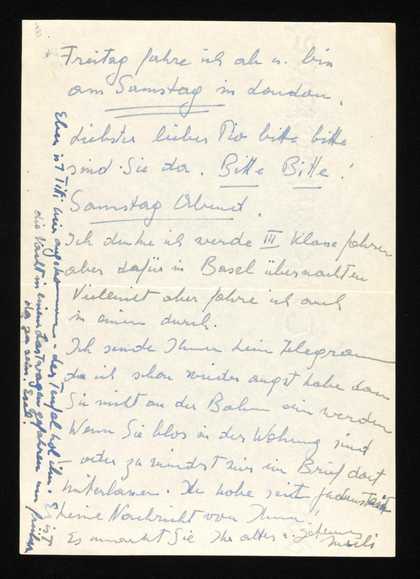 Freitag fahre ich ab u. bin
am Samstag in London.
liebster lieber Pio bitte bitte
sind Sie da. Bitte Bitte!
Samstag Abend.
Ich denke ich werde III Klasse fahren
aber dafür in Basel übernachten
Vielleicht aber fahre ich auch
in einem durch.
Ich sende Ihnen kein Telegram
da ich schon wieder angst habe dann
Sie nicht an der Bahn sein werden
Wenn Sie blos in der Wohnung sind
– oder zu mindst mir ein Brief dort
hinterlassen. Ich habe seit
keine Nachricht von Ihnen!
Es umarmt Sie Ihr altes
Eben ist Titi hier angekommen – der Teufel hol ihn. Er ist
die Nacht in einem Lastwagen gefahren um früher
da zu sein.